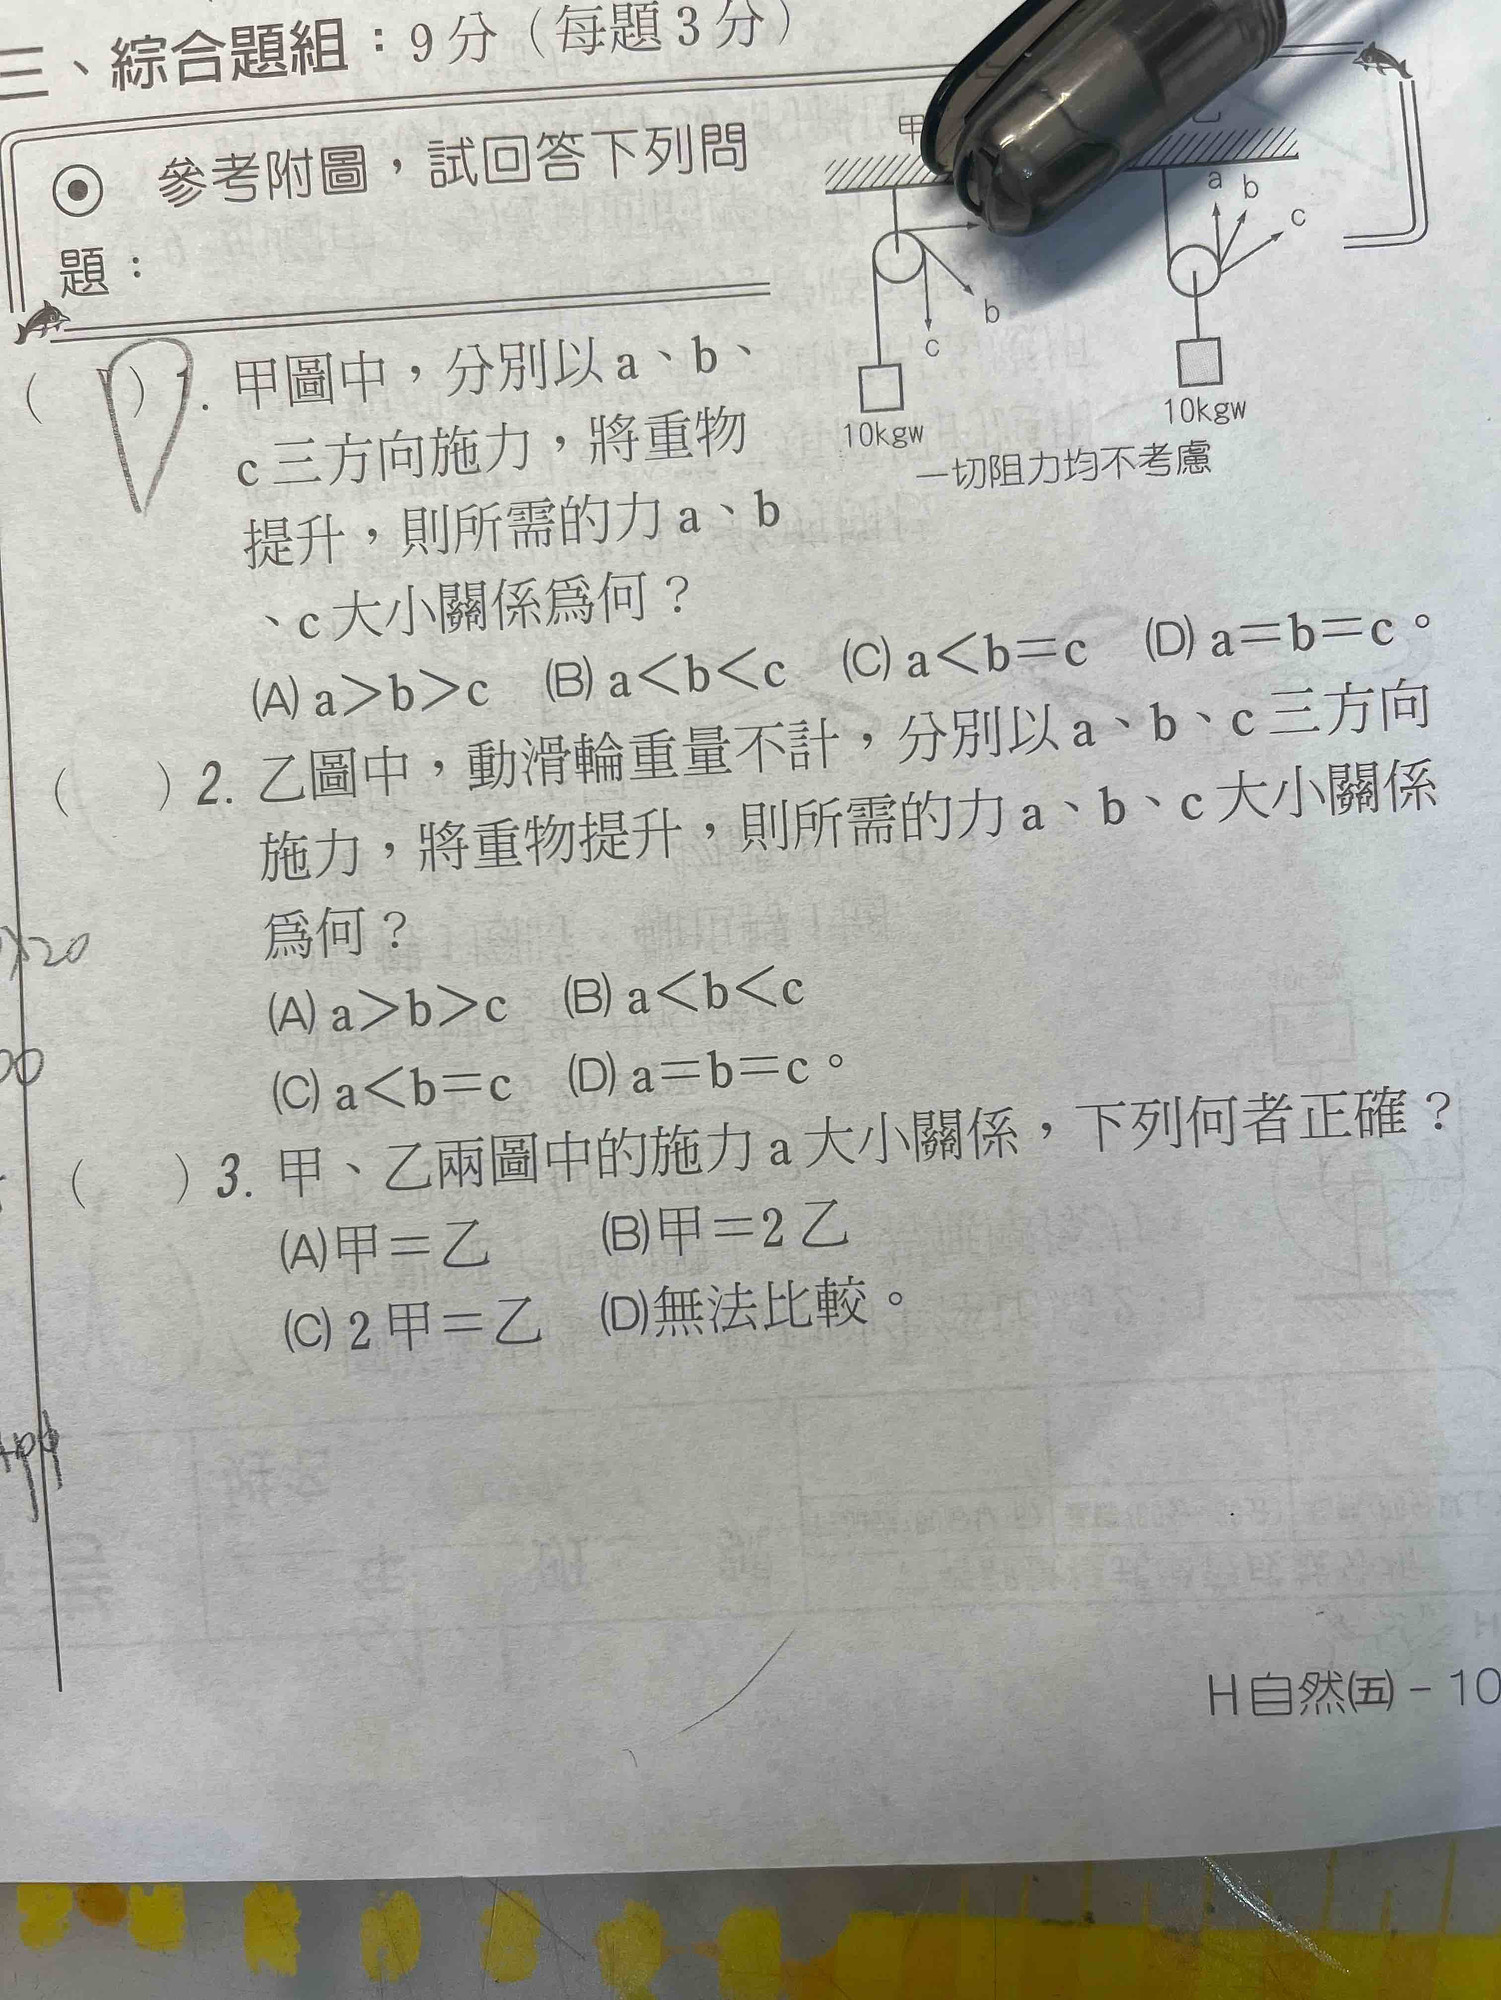 三、綜合題組：9分（每題3分）
參考附圖，試回答下列問
題：
甲
a b
c
b
c
10kgw
10kgw
一切阻力均不考慮
（ ）1. 甲圖中，分別以a、b、
c三方向施力，將重物
提升，則所需的力a、b
、c大小關係爲何？
(A) a＞b＞c (B) a＜b＜c (C) a＜b＝c (D) a＝b＝c。
（ ）2. 乙圖中，動滑輪重量不計，分別以a、b、c三方向
施力，將重物提升，則所需的力a、b、c大小關係
爲何？
(A) a＞b＞c (B) a＜b＜c
(C) a＜b＝c (D) a＝b＝c。
（ ）3. 甲、乙兩圖中的施力a大小關係，下列何者正確？
(A)甲＝乙 (B)甲＝2乙
(C) 2甲＝乙 (D)無法比較。
H自然㈤－10